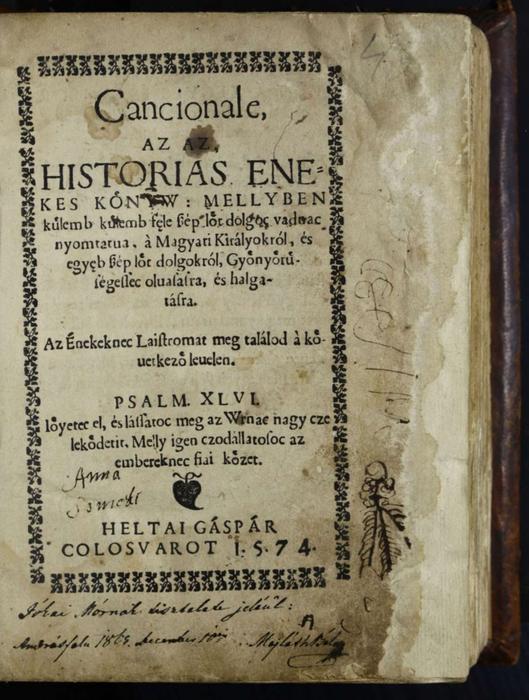 Cancionale,
AZ AZ,
HISTORIAS ENE=
KES KŐNYW: MELLYBEN
kűlemb kűlemb féle ßép lőt dolgoc vadnac
nyomtatua, à Magyari Királyokról, és
egyéb ßép lőt dolgokról, Gyönyörű-
ségessec oluasásra, és halga-
tásra.
Az Énekeknec Laistromat meg találod à kő-
uetkező leuelen.
PSALM. XLVI.
Iőyetec el, és lássatoc meg az Wrnac nagy cze
lekődetit, Melly igen czodállatosoc az
embereknec fiai kőzet.
Anna
HELTAI GÁSPÁR
COLOSVAROT 1.5.74.
Jókai Mórnak tisztelete jeléül:
Andrásfalu december Majláth Béla